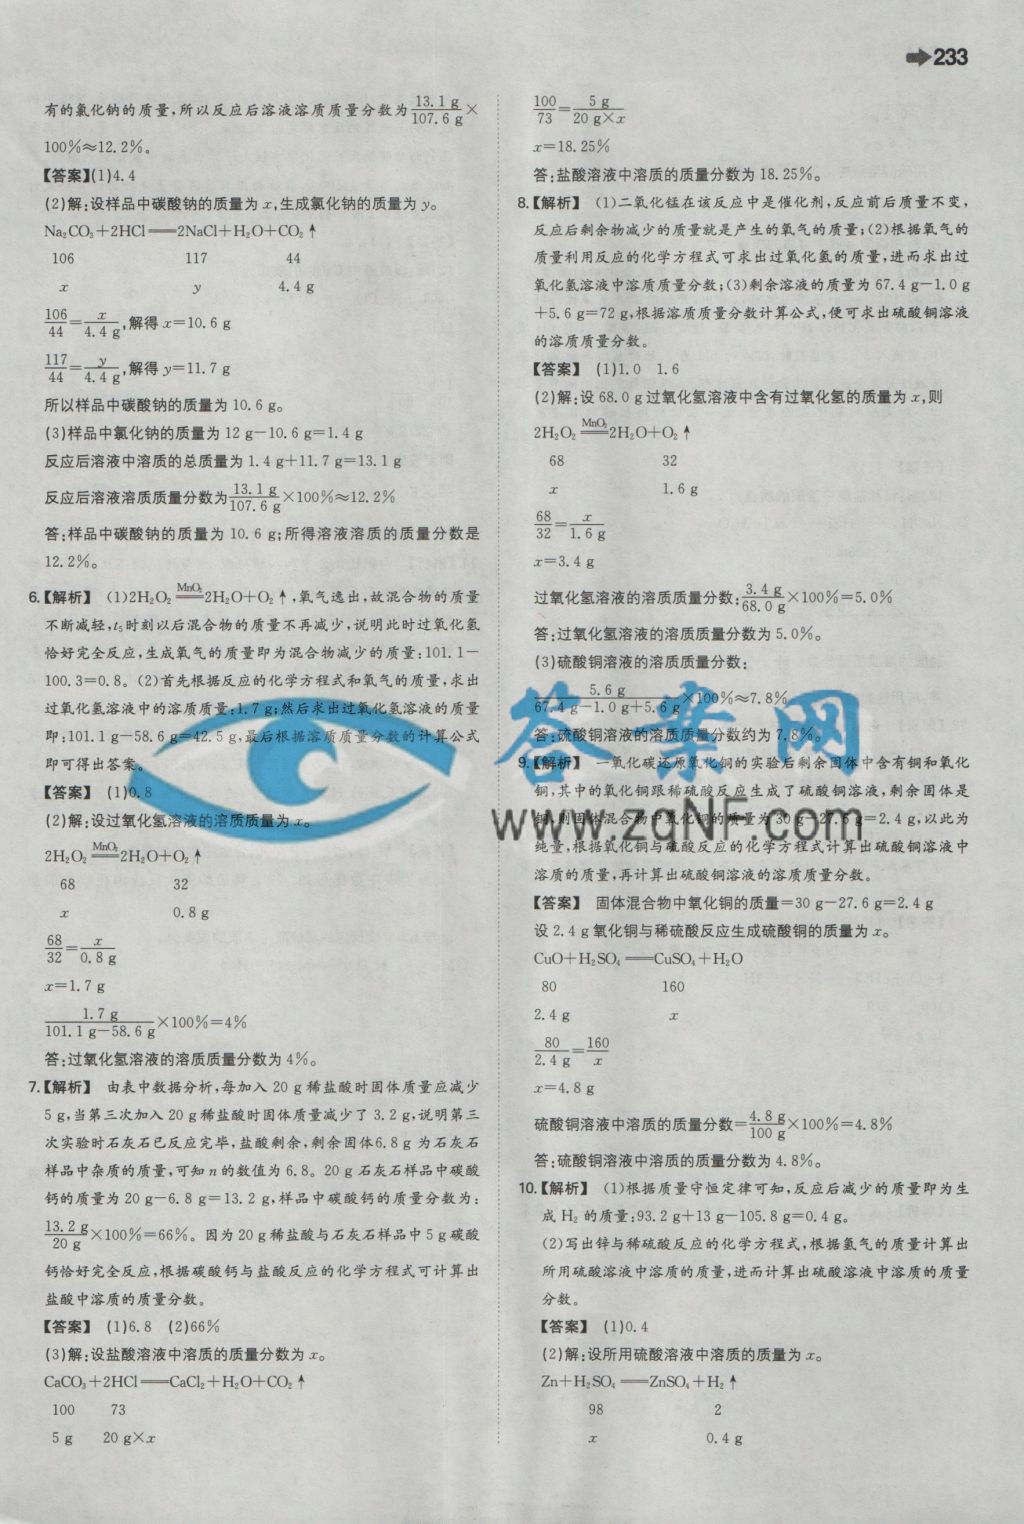 233
有的氯化钠的质量,所以反应后溶液溶质质量分数为13.1 g/107.6 g×
100%≈12.2%。
【答案】(1)4.4
(2)解:设样品中碳酸钠的质量为 x,生成氯化钠的质量为 y。
Na₂CO₃+2HCl══2NaCl+H₂O+CO₂↑
106 117 44
x y 4.4 g
106/44=x/4.4 g,解得 x=10.6 g
117/44=y/4.4 g,解得 y=11.7 g
所以样品中碳酸钠的质量为 10.6 g。
(3)样品中氯化钠的质量为 12 g-10.6 g=1.4 g
反应后溶液中溶质的总质量为 1.4 g+11.7 g=13.1 g
反应后溶液溶质质量分数为13.1 g/107.6 g×100%≈12.2%
答:样品中碳酸钠的质量为 10.6 g;所得溶液溶质的质量分数是
12.2%。
6.【解析】 (1)2H₂O₂ MnO₂══2H₂O+O₂↑,氧气逸出,故混合物的质量
不断减轻,t₅时刻以后混合物的质量不再减少,说明此时过氧化氢
恰好完全反应,生成氧气的质量即为混合物减少的质量:101.1-
100.3=0.8。(2)首先根据反应的化学方程式和氧气的质量,求出
过氧化氢溶液中的溶质质量:1.7 g;然后求出过氧化氢溶液的质量
即:101.1 g-58.6 g=42.5 g,最后根据溶质质量分数的计算公式
即可得出答案。
【答案】 (1)0.8
(2)解:设过氧化氢溶液的溶质质量为 x。
2H₂O₂ MnO₂══2H₂O+O₂↑
68 32
x 0.8 g
68/32=x/0.8 g
x=1.7 g
1.7 g/101.1 g-58.6 g×100%=4%
答:过氧化氢溶液的溶质质量分数为 4%。
7.【解析】 由表中数据分析,每加入 20 g 稀盐酸时固体质量应减少
5 g,当第三次加入 20 g 稀盐酸时固体质量减少了 3.2 g,说明第三
次实验时石灰石已反应完毕,盐酸剩余,剩余固体6.8 g 为石灰石
样品中杂质的质量,可知 n 的数值为 6.8。20 g 石灰石样品中碳酸
钙的质量为 20 g-6.8 g=13.2 g,样品中碳酸钙的质量分数为:
13.2 g/20 g×100%=66%。因为 20 g 稀盐酸与石灰石样品中 5 g 碳酸
钙恰好完全反应,根据碳酸钙与盐酸反应的化学方程式可计算出
盐酸中溶质的质量分数。
【答案】 (1)6.8 (2)66%
(3)解:设盐酸溶液中溶质的质量分数为 x。
CaCO₃+2HCl══CaCl₂+H₂O+CO₂↑
100 73
5 g 20 g×x
100/73=5 g/20 g×x
x=18.25%
答:盐酸溶液中溶质的质量分数为 18.25%。
8.【解析】 (1)二氧化锰在该反应中是催化剂,反应前后质量不变,
反应后剩余物减少的质量就是产生的氧气的质量;(2)根据氧气的
质量利用反应的化学方程式可求出过氧化氢的质量,进而求出过
氧化氢溶液中溶质质量分数;(3)剩余溶液的质量为 67.4 g-1.0 g
+5.6 g=72 g,根据溶质质量分数计算公式,便可求出硫酸铜溶液
的溶质质量分数。
【答案】 (1)1.0 1.6
(2)解:设 68.0 g 过氧化氢溶液中含有过氧化氢的质量为 x,则
2H₂O₂ MnO₂══2H₂O+O₂↑
68 32
x 1.6 g
68/32=x/1.6 g
x=3.4 g
过氧化氢溶液的溶质质量分数:3.4 g/68.0 g×100%=5.0%
答:过氧化氢溶液的溶质质量分数为 5.0%。
(3)硫酸铜溶液的溶质质量分数:
5.6 g/67.4 g-1.0 g+5.6 g×100%≈7.8%
答:硫酸铜溶液的溶质质量分数约为 7.8%。
9.【解析】 一氧化碳还原氧化铜的实验后剩余固体中含有铜和氧化
铜,其中的氧化铜跟稀硫酸反应生成了硫酸铜溶液,剩余固体是
铜,则固体混合物中氧化铜的质量为 30 g-27.6 g=2.4 g,以此为
纯量,根据氧化铜与硫酸反应的化学方程式计算出硫酸铜溶液中
溶质的质量,再计算出硫酸铜溶液的溶质质量分数。
【答案】 固体混合物中氧化铜的质量=30 g-27.6 g=2.4 g
设 2.4 g 氧化铜与稀硫酸反应生成硫酸铜的质量为 x。
CuO+H₂SO₄══CuSO₄+H₂O
80 160
2.4 g x
80/2.4 g=160/x
x=4.8 g
硫酸铜溶液中溶质的质量分数=4.8 g/100 g×100%=4.8%
答:硫酸铜溶液中溶质的质量分数为 4.8%。
10.【解析】 (1)根据质量守恒定律可知,反应后减少的质量即为生
成 H₂ 的质量:93.2 g+13 g-105.8 g=0.4 g。
(2)写出锌与稀硫酸反应的化学方程式,根据氢气的质量计算出
所用硫酸溶液中溶质的质量,进而计算出硫酸溶液中溶质的质量
分数。
【答案】 (1)0.4
(2)解:设所用硫酸溶液中溶质的质量为 x。
Zn+H₂SO₄══ZnSO₄+H₂↑
98 2
x 0.4 g
答案网
www.zqNF.com